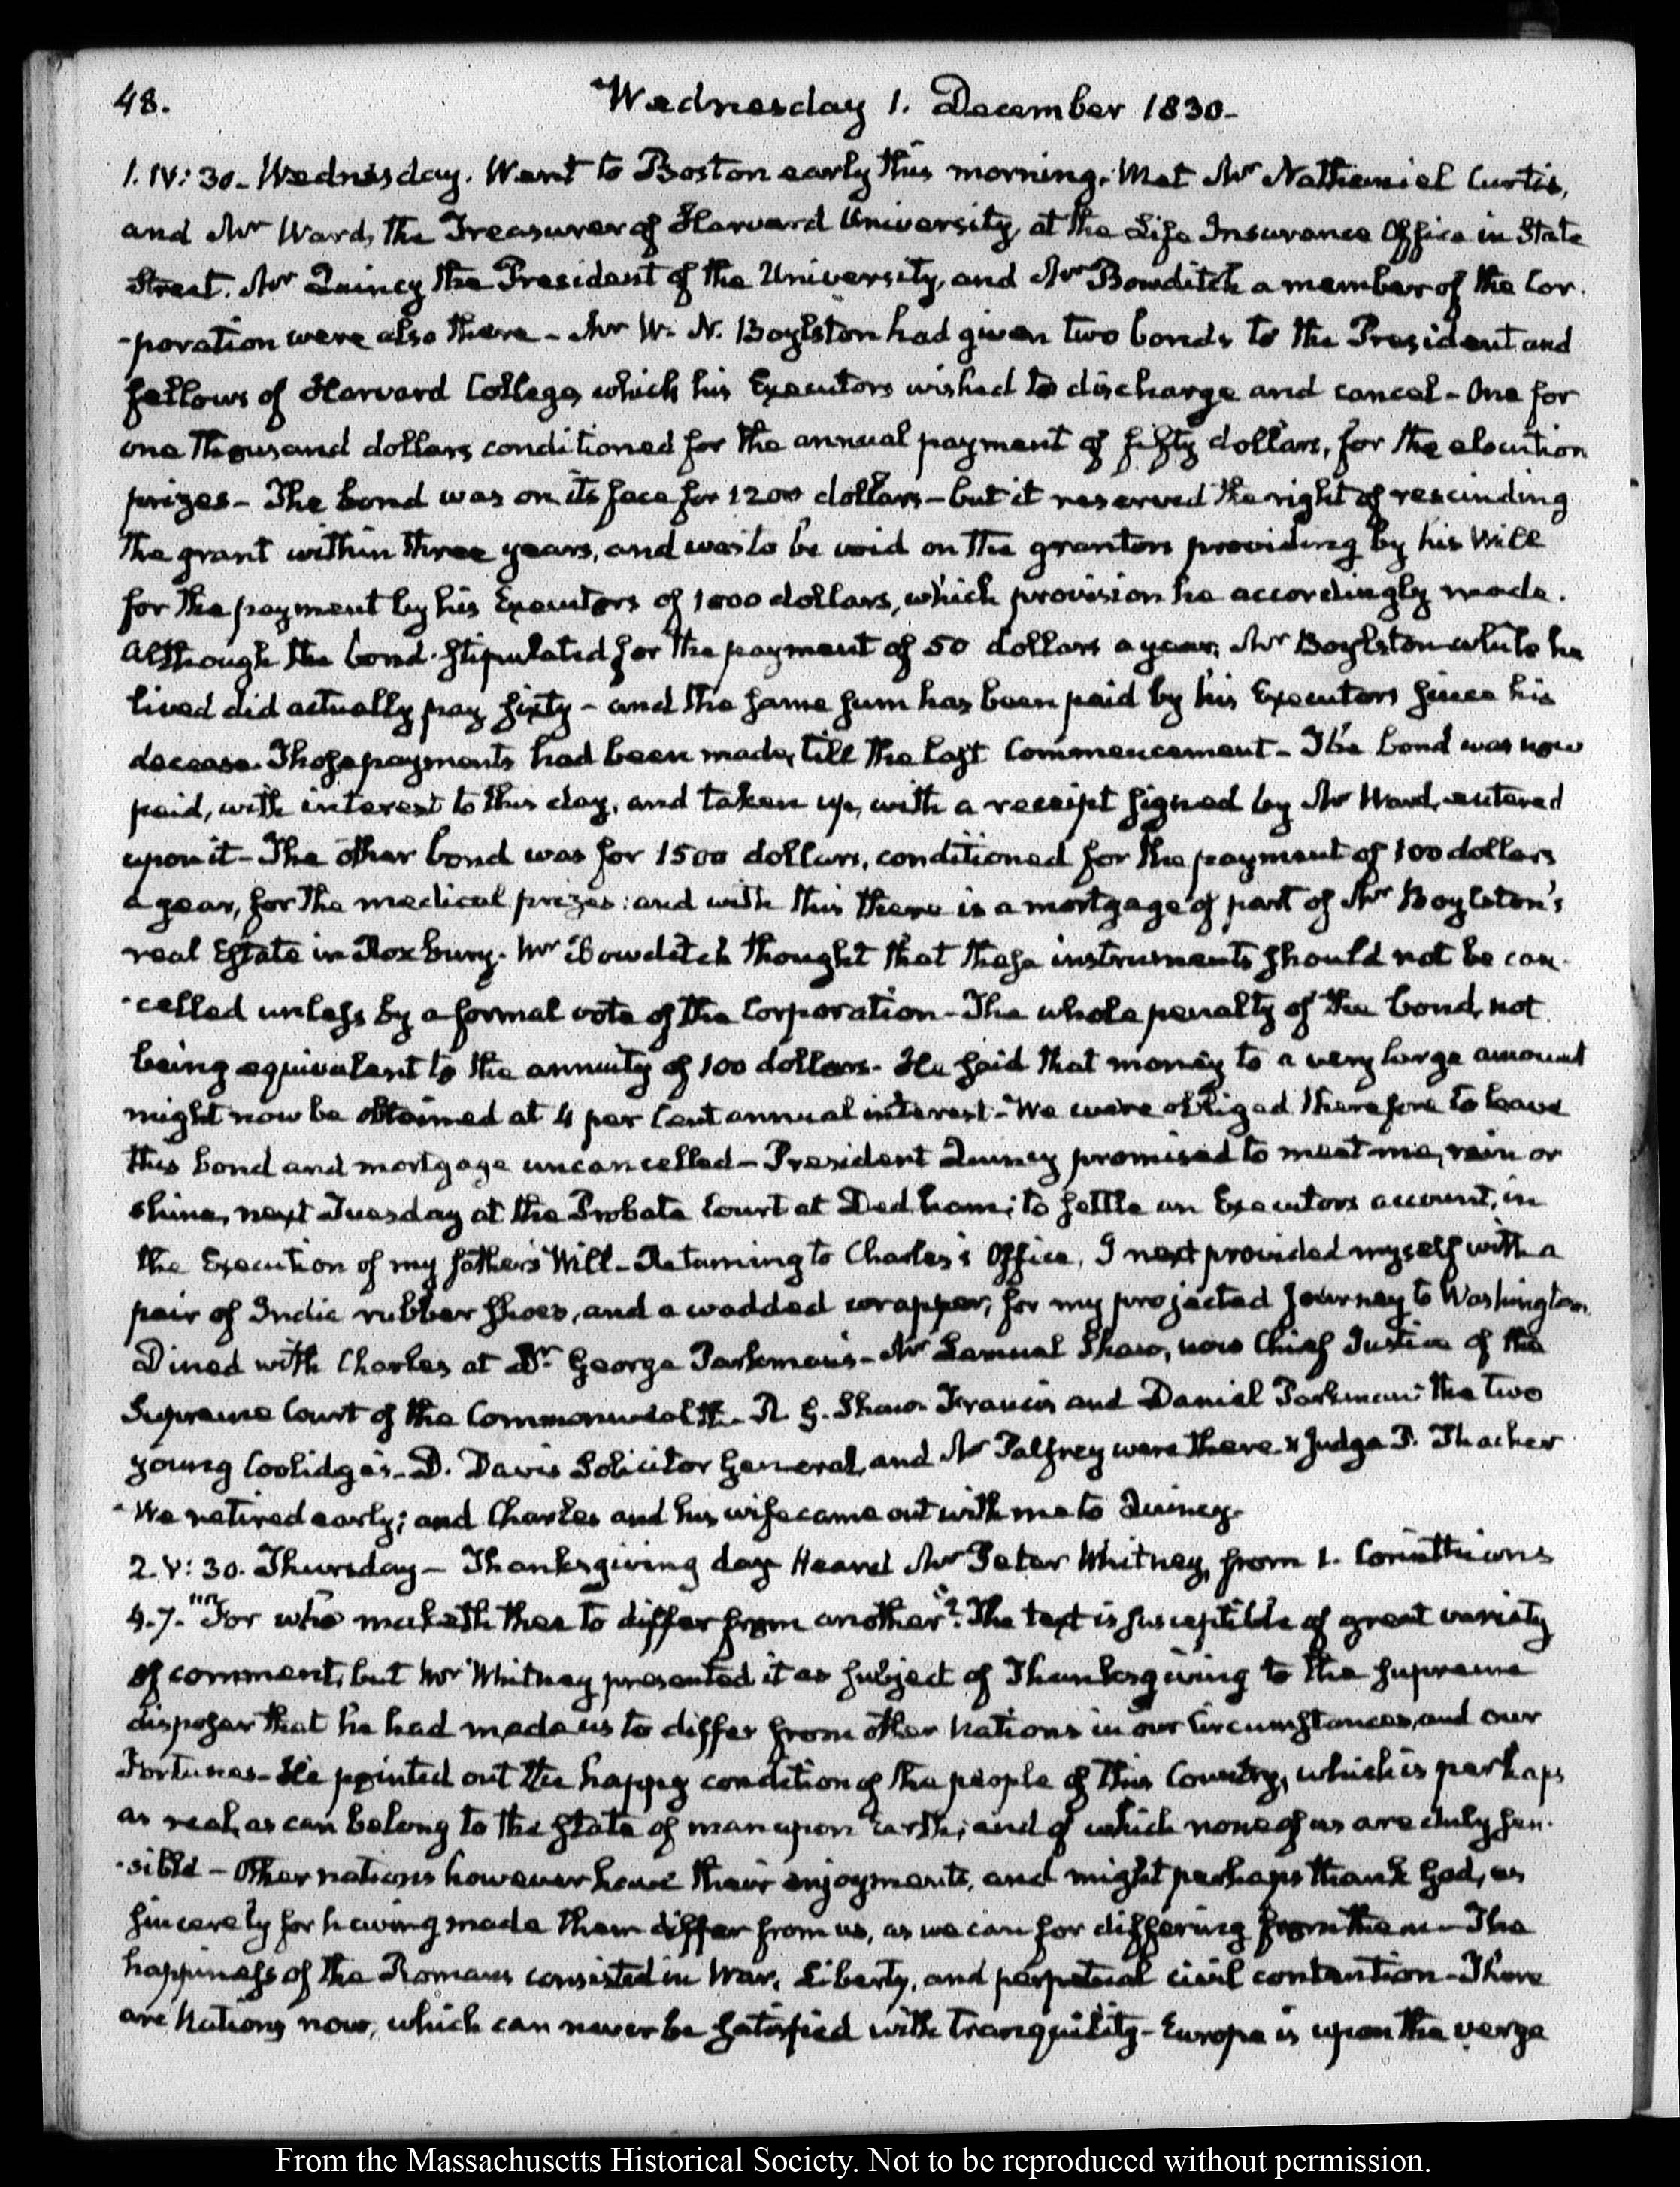 48.
Wednesday 1. December 1830-
1. IV: 30. Wednesday. Went to Boston early this morning. Met Mr Nathaniel Curtis,
and Mr Ward, the Treasurer of Harvard University, at the Life Insurance Office in State
Street. Mr Quincy the President of the University, and Mr Bowditch a member of the Cor-
-poration were also there - Mr W. N. Boylston had given two bonds to the President and
fellows of Harvard College, which his Executors wished to discharge and cancel - One for
one thousand dollars conditioned for the annual payment of fifty dollars, for the elocution
prizes - The bond was on its face for 1200 dollars - but it reserved the right of rescinding
the grant within three years, and was to be void on the grantors providing by his Will
for the payment by his Executors of 1000 dollars, which provision he accordingly made.
Although the bond stipulated for the payment of 50 dollars a year, Mr Boylston while he
lived did actually pay sixty - and the same sum has been paid by his Executors since his
decease. Those payments had been made, till the last Commencement - The bond was now
paid, with interest to this day, and taken up, with a receipt signed by Mr Ward, entered
upon it - The other bond was for 1500 dollars, conditioned for the payment of 100 dollars
a year, for the medical prizes: and with this there is a mortgage of part of Mr Boylston's
real Estate in Roxbury. Mr Bowditch thought that these instruments should not be can-
-celled unless by a formal vote of the Corporation - The whole penalty of the bond, not
being equivalent to the annuity of 100 dollars. He said that money to a very large amount
might now be obtained at 4 per Cent annual interest - We were obliged therefore to leave
this bond and mortgage uncancelled - President Quincy promised to meet me, rain or
shine, next Tuesday at the Probate Court at Dedham; to settle an Executors account, in
the Execution of my father's Will - Returning to Charles's Office, I next provided myself with a
pair of India rubber shoes, and a wadded wrapper, for my projected journey to Washington.
Dined with Charles at Dr George Parkman's - Mr Lemuel Shaw, now Chief Justice of the
Supreme Court of the Commonwealth - R. G. Shaw Francis and Daniel Parkman the two
young Coolidges - D. Davis Solicitor General, and Mr Palfrey were there & Judge P. Thacher
- We retired early; and Charles and his wife came out with me to Quincy.
2. V: 30. Thursday - Thanksgiving day Heard Mr Peter Whitney, from 1. Corinthians
4. 7. "For who maketh thee to differ from another"? The text is susceptible of great variety
of comment, but Mr Whitney presented it as subject of Thanksgiving to the supreme
disposer that he had made us to differ from other Nations in our Circumstances, and our
Fortunes - He pointed out the happy condition of the people of this Country, which is perhaps
as real, as can belong to the state of man upon Earth; and of which none of us are duly sen-
-sible - Other nations however have their enjoyments, and might perhaps thank God, as
sincerely for having made them differ from us, as we can for differing from them - The
happiness of the Romans consisted in War, Liberty, and perpetual civil contention - There
are Nations now, which can never be satisfied with tranquility - Europe is upon the verge
From the Massachusetts Historical Society. Not to be reproduced without permission.